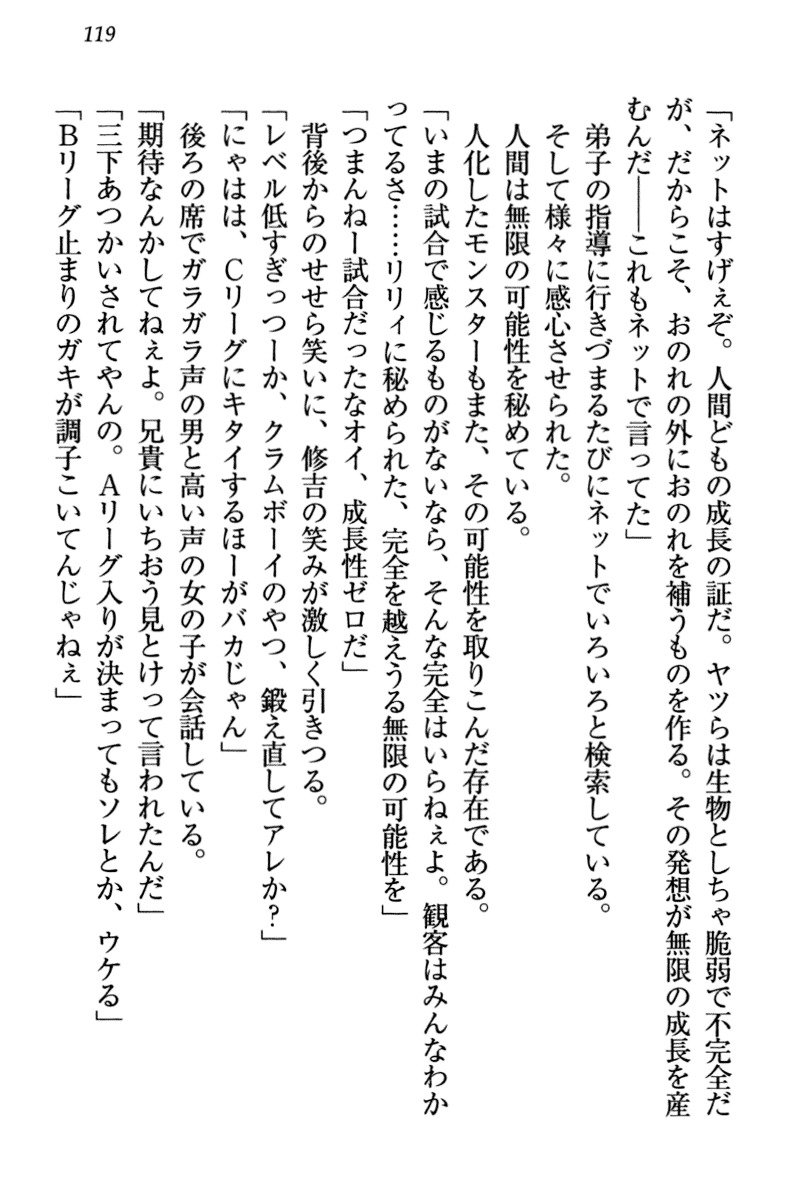 119
「ネットはすげぇぞ。人間どもの成長の証だ。ヤツらは生物としちゃ脆弱で不完全だ
が、だからこそ、おのれの外におのれを補うものを作る。その発想が無限の成長を産
むんだ――これもネットで言ってた」
弟子の指導に行きづまるたびにネットでいろいろと検索している。
そして様々に感心させられた。
人間は無限の可能性を秘めている。
人化したモンスターもまた、その可能性を取りこんだ存在である。
「いまの試合で感じるものがないなら、そんな完全はいらねぇよ。観客はみんなわか
ってるさ……リリィに秘められた、完全を越えうる無限の可能性を」
「つまんねー試合だったなオイ、成長性ゼロだ」
背後からのせせら笑いに、修吉の笑みが激しく引きつる。
「レベル低すぎっつーか、クラムボーイのやつ、鍛え直してアレか?」
「にゃはは、Cリーグにキタイするほーがバカじゃん」
後ろの席でガラガラ声の男と高い声の女の子が会話している。
「期待なんかしてねぇよ。兄貴にいちおう見とけって言われたんだ」
「三下あつかいされてやんの。Aリーグ入りが決まってもソレとか、ウケる」
「Bリーグ止まりのガキが調子こいてんじゃねぇ」